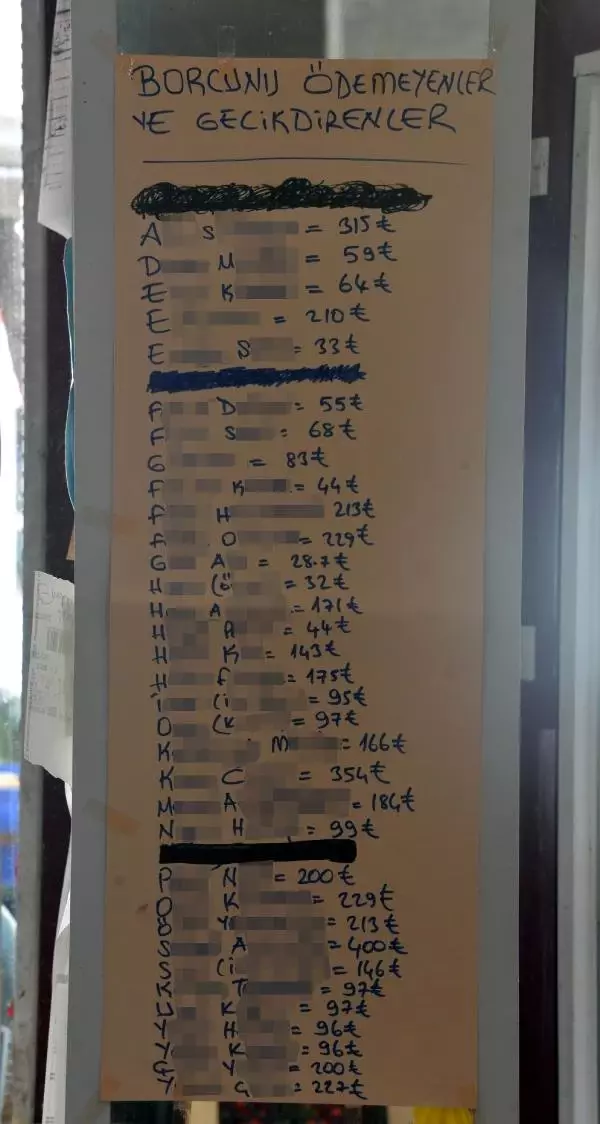 BORCUNU ÖDEMEYENLER
VE GECİKDİRENLER
A S = 315 ₺
D M = 59 ₺
E K = 64 ₺
E = 210 ₺
E S = 33 ₺
F D = 55 ₺
F S = 68 ₺
G = 83 ₺
F K = 44 ₺
F H 213 ₺
F O = 229 ₺
G A = 28.7 ₺
H (Ö = 32 ₺
H A = 171 ₺
H A = 44 ₺
H K = 143 ₺
H F = 175 ₺
İ (i = 95 ₺
O (K = 97 ₺
K M = 166 ₺
K C = 354 ₺
M A = 184 ₺
N H = 99 ₺
P N = 200 ₺
O K = 229 ₺
Y = 213 ₺
S A = 400 ₺
S (i = 146 ₺
K T = 97 ₺
U K = 97 ₺
Y H = 96 ₺
Y K = 96 ₺
Y = 200 ₺
Y G = 227 ₺